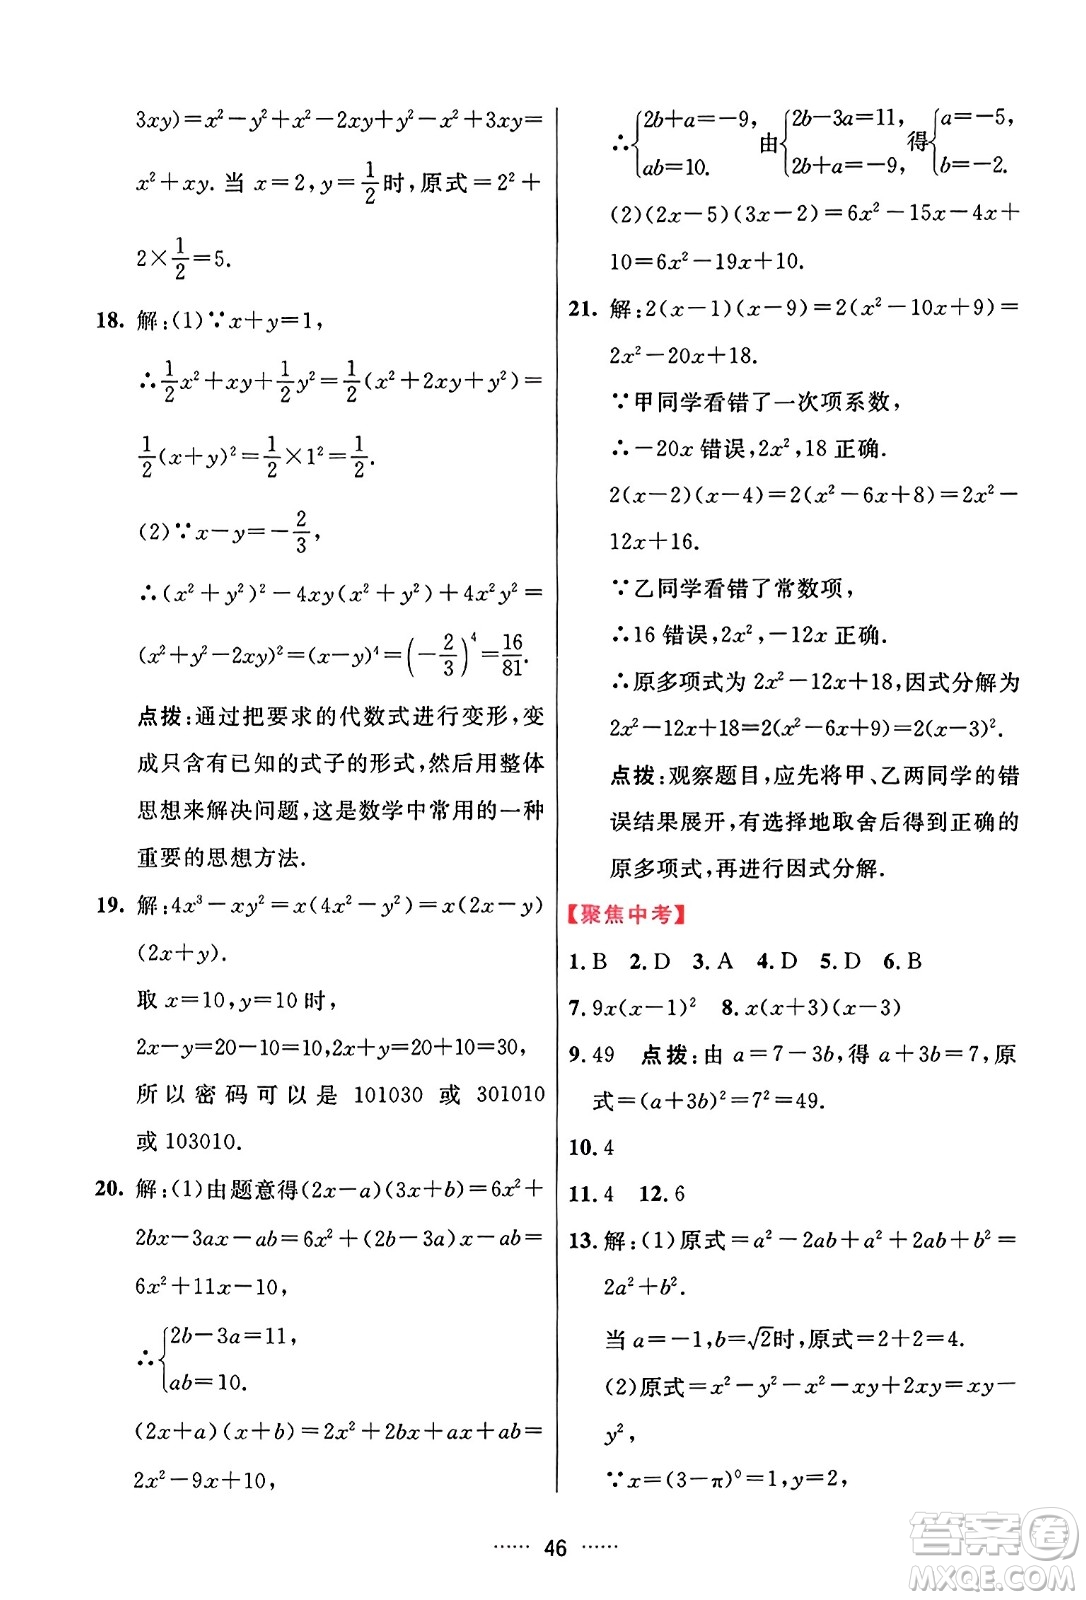 3xy)=x²-y²+x²-2xy+y²+3xy=
x²+xy. 当 x=2,y=1/2时,原式=2²+
2×1/2=5.
18. 解:(1)∵x+y=1,
∴1/2x²+xy+1/2y²=1/2(x²+2xy+y²)=
1/2(x+y)²=1/2×1²=1/2.
(2)∵x-y=-2/3,
∴(x²+y²)²-4xy(x²+y²)+4x²y²=
(x²+y²-2xy)²=(x-y)⁴=(-2/3)⁴=16/81.
点拨:通过把要求的代数式进行变形,变
成只含有已知的式子的形式,然后用整体
思想来解决问题,这是数学中常用的一种
重要的思想方法.
19. 解:4x³-xy²=x(4x²-y²)=x(2x-y)
(2x+y).
取 x=10,y=10 时,
2x-y=20-10=10,2x+y=20+10=30,
所以密码可以是 101030 或 301010
或 103010.
20. 解:(1)由题意得(2x-a)(3x+b)=6x²+
2bx-3ax-ab=6x²+(2b-3a)x-ab=
6x²+11x-10,
∴{2b-3a=11,
ab=10.
(2x+a)(x+b)=2x²+2bx+ax+ab=
2x²-9x+10,
∴{2b+a=-9, 由{2b-3a=11, 得{a=-5,
ab=10. 2b+a=-9, b=-2.
(2)(2x-5)(3x-2)=6x²-15x-4x+
10=6x²-19x+10.
21. 解:2(x-1)(x-9)=2(x²-10x+9)=
2x²-20x+18.
∵甲同学看错了一次项系数,
∴-20x 错误,2x²,18 正确.
2(x-2)(x-4)=2(x²-6x+8)=2x²-
12x+16.
∵乙同学看错了常数项,
∴16 错误,2x²,-12x 正确.
∴原多项式为 2x²-12x+18,因式分解为
2x²-12x+18=2(x²-6x+9)=2(x-3)².
点拨:观察题目,应先将甲、乙两同学的错
误结果展开,有选择地取舍后得到正确的
原多项式,再进行因式分解.
【聚焦中考】
1. B 2. D 3. A 4. D 5. D 6. B
7. 9x(x-1)² 8. x(x+3)(x-3)
9. 49 点拨:由 a=7-3b,得 a+3b=7,原
式=(a+3b)²=7²=49.
10. 4
11. 4 12. 6
13. 解:(1)原式=a²-2ab+a²+2ab+b²=
2a²+b².
当 a=-1,b=√2时,原式=2+2=4.
(2)原式=x²-y²-x²-xy+2xy=xy-
y²,
∵x=(3-π)⁰=1,y=2,
······ 46 ······
答案圈
MXQE.COM